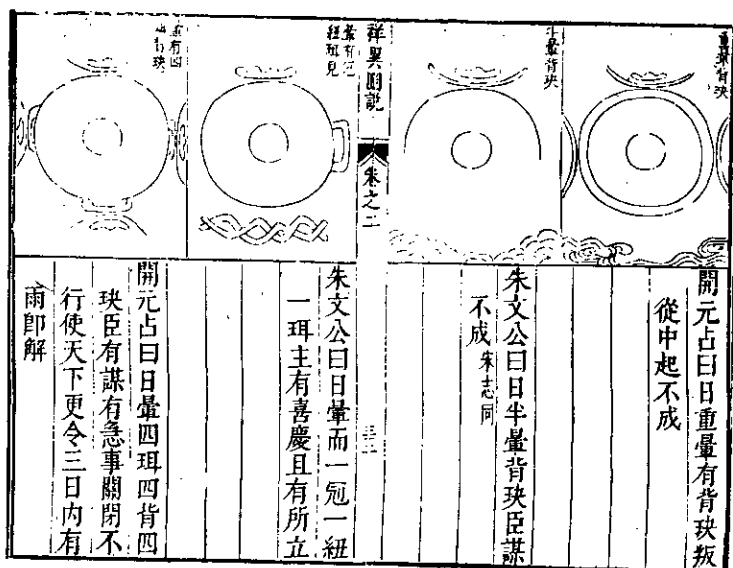 重暈背玦
開元占曰日重暈有背玦叛
從中起不成
半暈背玦
朱文公曰日半暈背玦臣謀
不成宋志同
祥異圖說
卷之二
朱文公曰日暈而一冠一紐
一珥主有喜慶且有所立
開元占曰日暈四珥四背四
玦臣有謀有急事關閉不
行使天下更令三日內有
雨即解